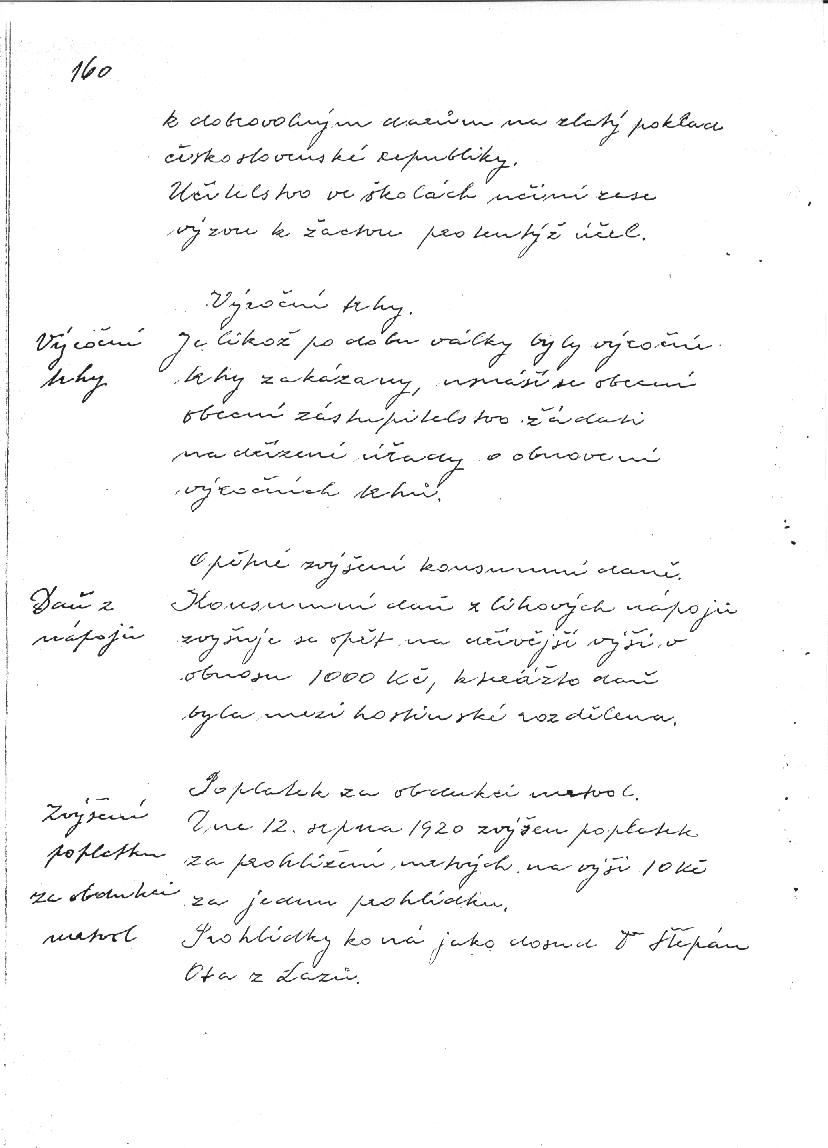 160
k dobrovolným darům na zlatý poklad
československé republiky.
Učitelstvo ve školách učiní zase
výzvu k žactvu pro tentýž účel.
Výroční trhy.
Výroční
trhy
Jelikož po dobu války byly výroční
trhy zakázany, usnáší se obecní
obecní zástupitelstvo žádati
nadřízené úřady o obnovení
výročních trhů.
Opětné zvýšení konsumní daně.
Daň z
nápojů
Konsumní daň z lihových nápojů
zvyšuje se opět na dřívější výši v
obnosu 1000 Kč, kterážto daň
byla mezi hostinské rozdělena.
Poplatek za obdukci mrtvol.
Zvýšení
poplatku
za obdukci
mrtvol
Dne 12. srpna 1920 zvýšen poplatek
za prohlížení mrtvých na výši 10 Kč
za jednu prohlídku.
Prohlídky koná jako dosud Dr Štěpán
Ota z Lazů.